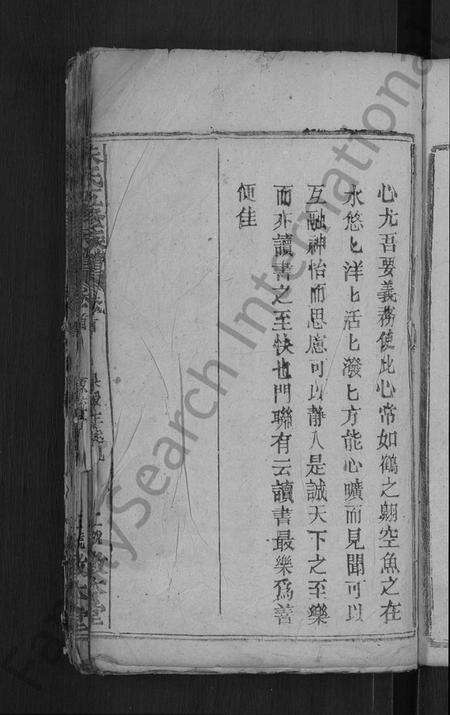 心尤吾要義務使此心常如鶴之翺空魚之在
水悠匕洋匕活匕潑匕方能心曠而見聞可以
互融神怡而思慮可以靜入是誠天下之至樂
而亦讀書之至快也門聯有云讀書最樂為善
便佳
FamilySearch International